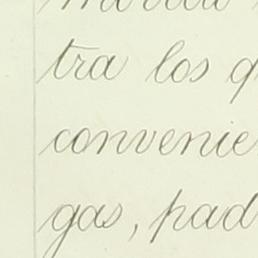 tra los q
convenie
gas, pad